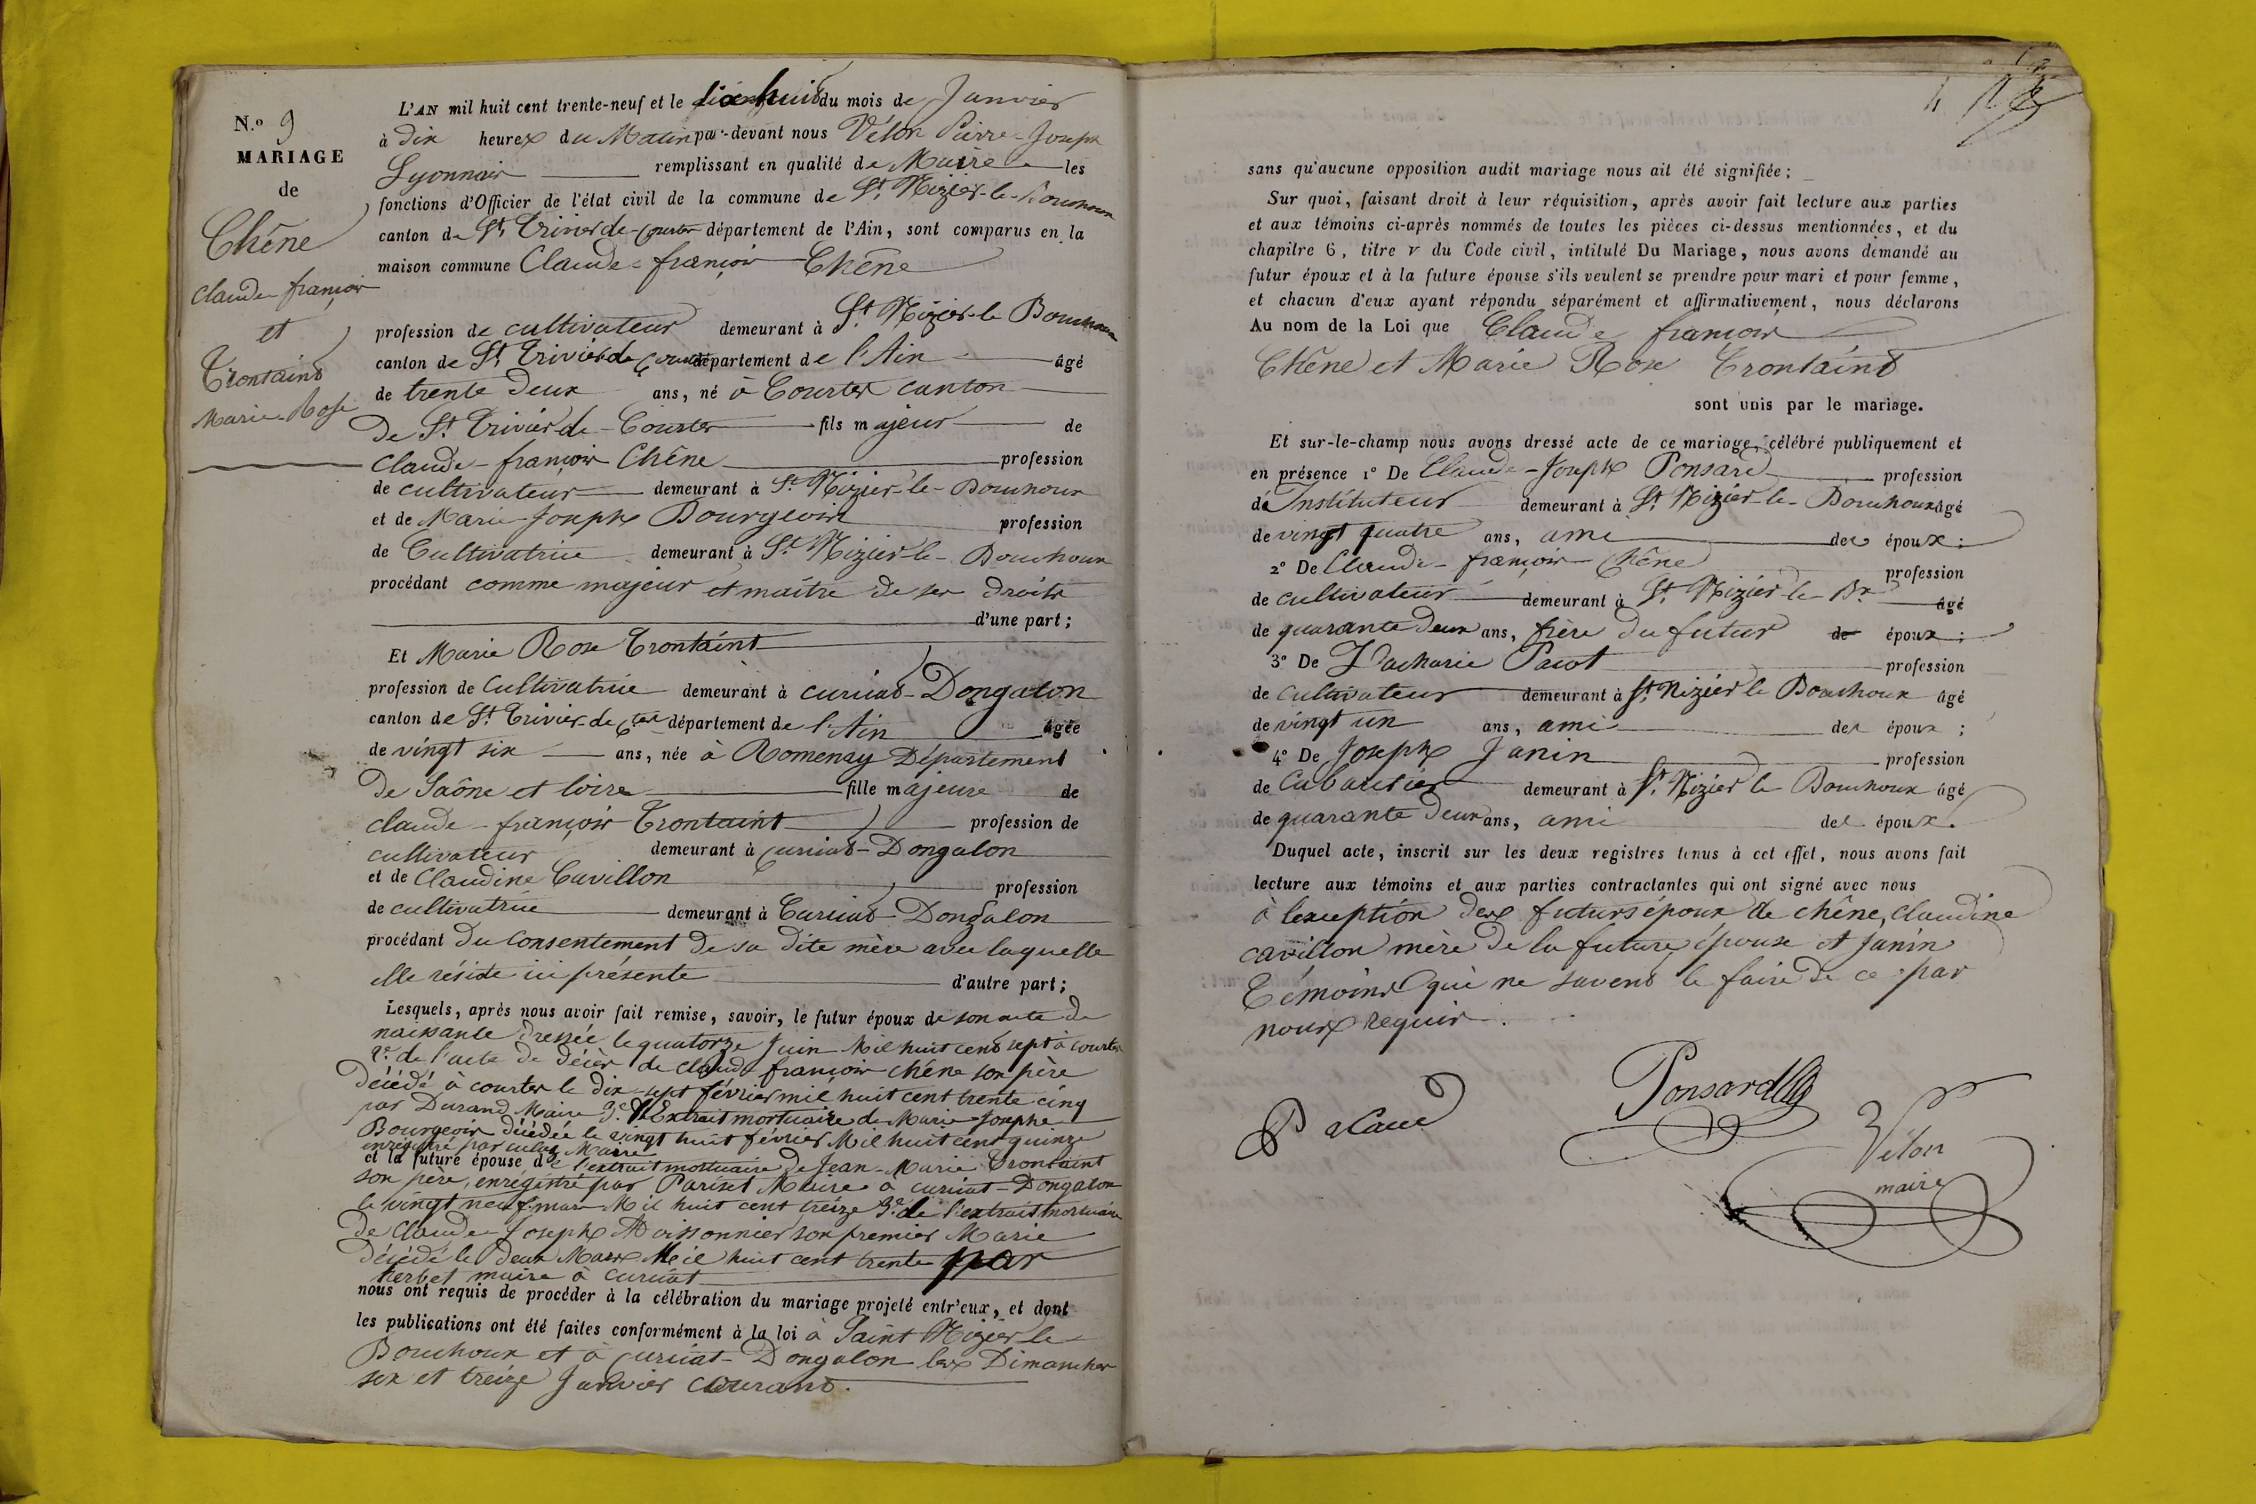 N.º 9
MARIAGE
de
Chêne
Claude françois
et
Trontaint
Marie-Rose
L'AN mil huit cent trente-neuf et le dix huit du mois de Janvier
à dix heures du Matin par-devant nous Vélon Pierre-Joseph
Lyonnais remplissant en qualité de Maire les
fonctions d'Officier de l'état civil de la commune de St Nizier-le-Bouchoux
canton de St Trivier de-Courtes département de l'Ain, sont comparus en la
maison commune Claude-françois Chêne
profession de cultivateur demeurant à St Nizier-le Bouchoux
canton de St Trivier de Courtes département de l'Ain âgé
de trente deux ans, né à Courtes canton
De St Trivier de-Courtes fils majeur de
Claude-françois Chêne profession
de cultivateur demeurant à St Nizier-le-Bouchoux
et de Marie-Josephe Bourgeois profession
de Cultivatrice demeurant à St Nizier-le-Bouchoux
procédant comme majeur et maître de ses droits
d'une part ;
Et Marie Rose Trontaint
profession de Cultivatrice demeurant à curciat-Dongalon
canton de St Trivier-de-Ctes département de l'Ain âgée
de vingt six ans, née à Romenay Département
de Saône et loire fille majeure de
claude-françois Trontaint profession de
cultivateur demeurant à curciat-Dongalon
et de Claudine Cavillon profession
de cultivatrice demeurant à Curciat-Dongalon
procédant du Consentement de sa dite mère avec laquelle
elle réside ici présente d'autre part ;
Lesquels, après nous avoir fait remise, savoir, le futur époux de son acte de
naissante dressée le quatorze Juin Mil huit cent sept à courtes
2.e de l'acte de décès de claude françois chêne son père
décédé à courtes le dix-sept février mil huit cent trente cinq
par Durand Maire 3.e l'Extrait mortuaire de Marie-Josephe
Bourgeois décédée le vingt huit février Mil huit cent quinze
enrégistré par Maire
et la future épouse de l'extrait mortuaire de Jean-Marie Trontaint
son père, enrégistré par Pariset Maire à curciat-Dongalon
le vingt neuf mars Mil huit cent treize 3.e de l'extrait mortuaire
de Claude Joseph Moissonnier son premier Marie
décédé le deux Mars Mil huit cent trente par
herbet maire à curciat
nous ont requis de procéder à la célébration du mariage projeté entr'eux, et dont
les publications ont été faites conformément à la loi à Saint Nizier le
Bouchoux et à curciat-Dongalon les Dimanches
six et treize Janvier courant.
4
sans qu'aucune opposition audit mariage nous ait été signifiée ;
Sur quoi, faisant droit à leur réquisition, après avoir fait lecture aux parties
et aux témoins ci-après nommés de toutes les pièces ci-dessus mentionnées, et du
chapitre 6, titre v du Code civil, intitulé Du Mariage, nous avons demandé au
futur époux et à la future épouse s'ils veulent se prendre pour mari et pour femme,
et chacun d'eux ayant répondu séparément et affirmativement, nous déclarons
Au nom de la Loi que Claude françois
Chêne et Marie Rose Trontaint
sont unis par le mariage.
Et sur-le-champ nous avons dressé acte de ce mariage, célébré publiquement et
en présence 1º De Claude-Joseph Ponsard profession
de Instituteur demeurant à St Nizier-le-Bouchoux âgé
de vingt quatre ans, ami des époux ;
2º De Claude-françois Chêne profession
de cultivateur demeurant à St Nizier-le-Bx âgé
de quarante deux ans, frère du futur de époux ;
3º De Zacharie Pacot profession
de cultivateur demeurant à St Nizier le Bouchoux âgé
de vingt un ans, ami des époux ;
4º De Joseph Janin profession
de Cabaretier demeurant à St Nizier le Bouchoux âgé
de quarante deux ans, ami des époux.
Duquel acte, inscrit sur les deux registres tenus à cet effet, nous avons fait
lecture aux témoins et aux parties contractantes qui ont signé avec nous
à l'exception des futurs époux de chêne, claudine
cavillon mère de la future épouse et Janin
Témoins qui ne savent le faire de ce par
nous requis.
Ponsard
Vélon
maire